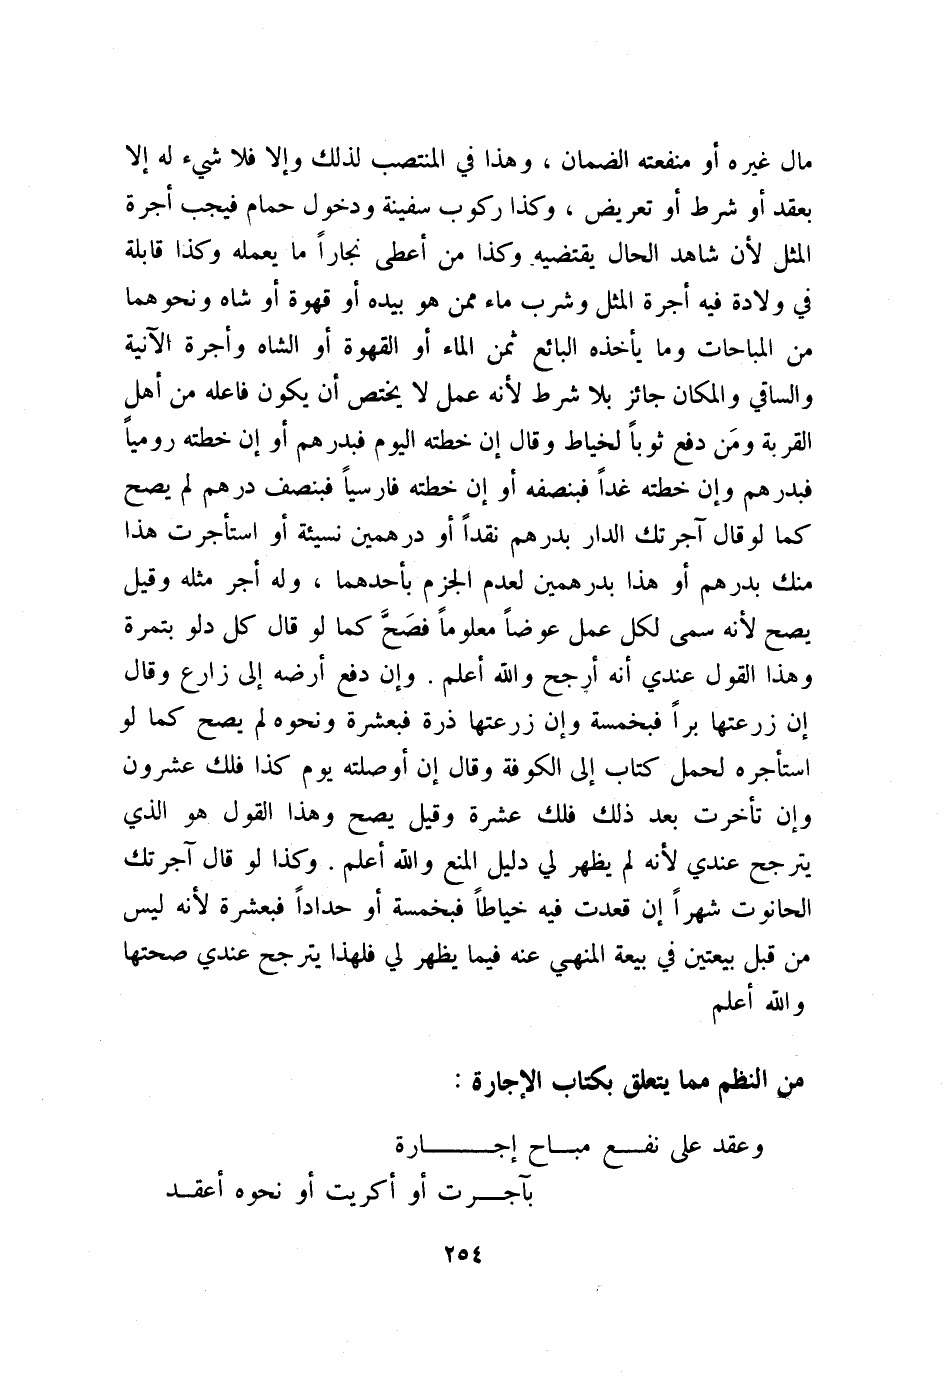 مال غيره أو منفعته الضمان ، وهذا في المنتصب لذلك وإلا فلا شيء له إلا
بعقد أو شرط أو تعريض ، وكذا ركوب سفينة ودخول حمام فيجب أجرة
المثل لأن شاهد الحال يقتضيه وكذا من أعطى نجاراً ما يعمله وكذا قابلة
في ولادة فيه أجرة المثل وشرب ماء ممن هو بيده أو قهوة أو شاه ونحوهما
من المباحات وما يأخذه البائع ثمن الماء أو القهوة أو الشاه وأجرة الآنية
والساقي والمكان جائز بلا شرط لأنه عمل لا يختص أن يكون فاعله من أهل
القربة ومَن دفع ثوباً لخياط وقال إن خطته اليوم فبدرهم أو إن خطته رومياً
فبدرهم وإن خطته غداً فبنصفه أو إن خطته فارسياً فبنصف درهم لم يصح
كما لو قال آجرتك الدار بدرهم نقداً أو درهمين نسيئة أو استأجرت هذا
منك بدرهم أو هذا بدرهمين لعدم الجزم بأحدهما ، وله أجر مثله وقيل
يصح لأنه سمى لكل عمل عوضاً معلوماً فصَحَّ كما لو قال كل دلو بتمرة
وهذا القول عندي أنه أرجح والله أعلم . وإن دفع أرضه إلى زارع وقال
إن زرعتها براً فبخمسة وإن زرعتها ذرة فبعشرة ونحوه لم يصح كما لو
استأجره لحمل كتاب إلى الكوفة وقال إن أوصلته يوم كذا فلك عشرون
وإن تأخرت بعد ذلك فلك عشرة وقيل يصح وهذا القول هو الذي
يترجح عندي لأنه لم يظهر لي دليل المنع والله أعلم . وكذا لو قال آجرتك
الحانوت شهراً إن قعدت فيه خياطاً فبخمسة أو حداداً فبعشرة لأنه ليس
من قبل بيعتين في بيعة المنهي عنه فيما يظهر لي فلهذا يترجح عندي صحتها
والله أعلم
من النظم مما يتعلق بكتاب الإجارة :
وعقد على نفـــع مبـــاح إجـــــــارة
بآجـــرت أو أكريت أو نحوه أعقــد
٢٥٤